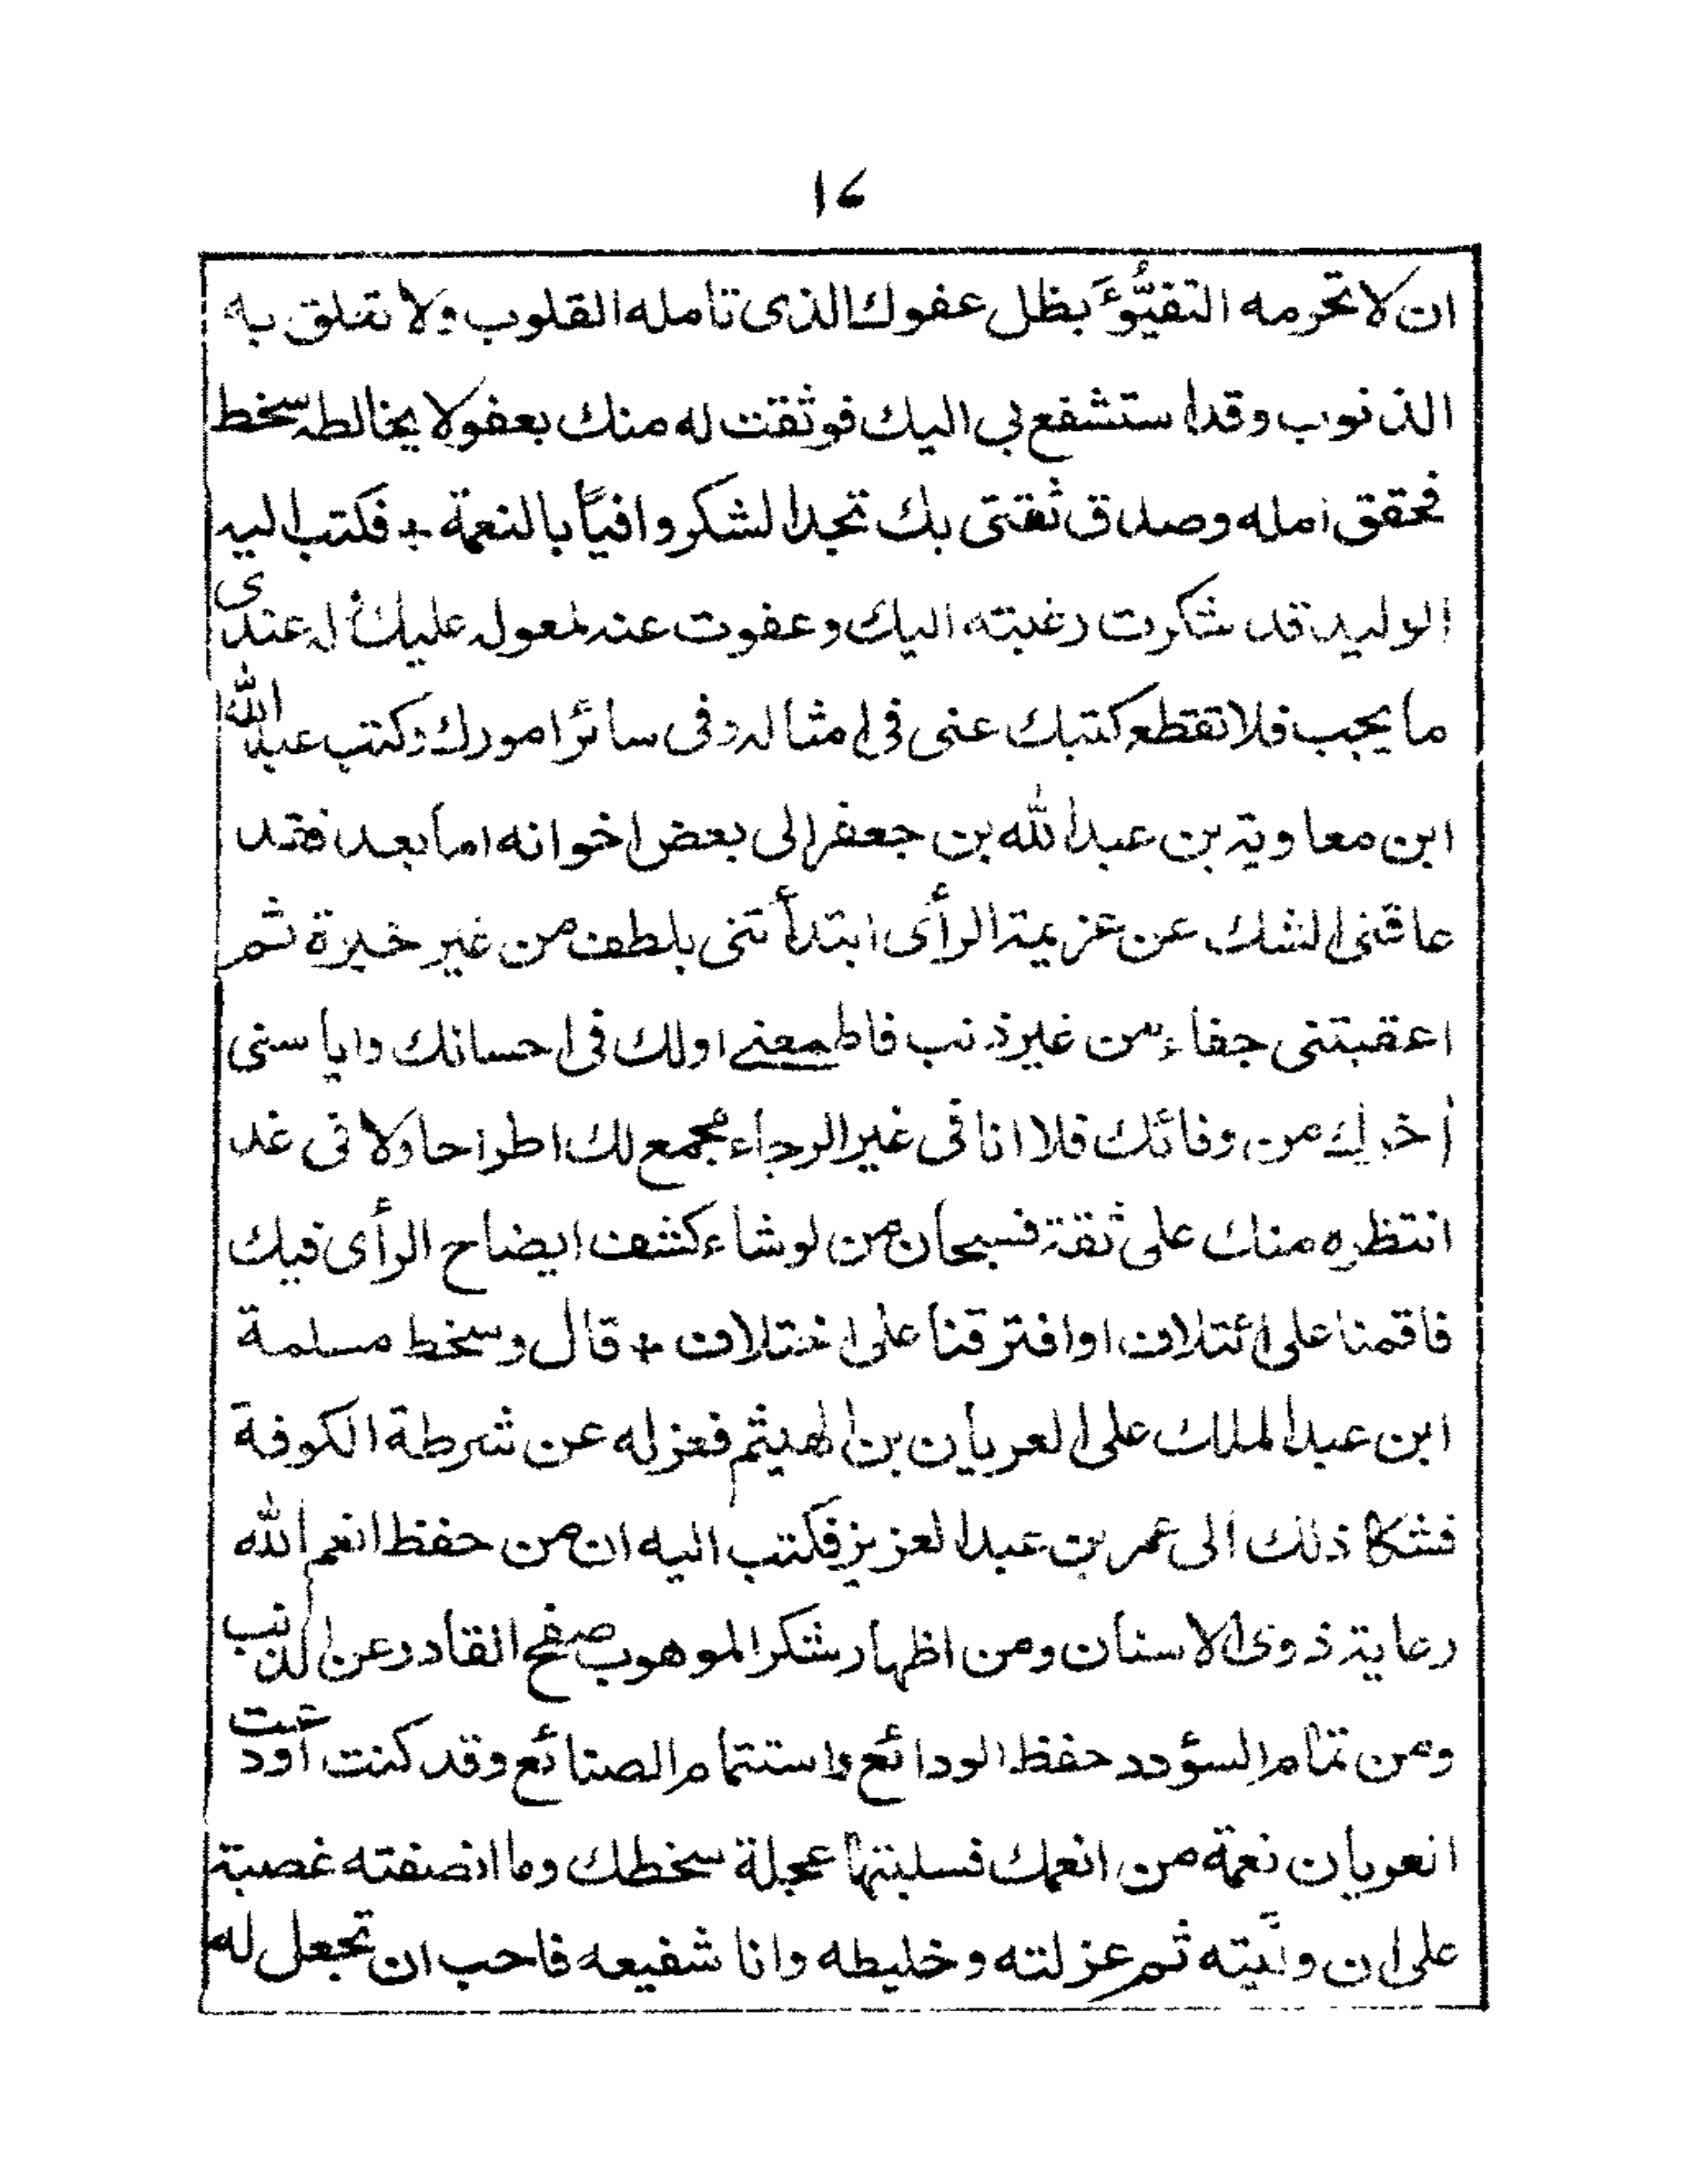 ١٦
ان لا تحرمه التفيُّؤَ بظل عفوك الذى تامله القلوب ولا تعلق به
الذنوب وقد استشفع بى اليك فوثقت له منك بعفو لا يخالطه سخط
فحقق امله وصدق ثقتى بك تجد الشكر وافياً بالنعمة + فكتب اليه
الوليد قد شكرت رغبته اليك وعفوت عنه لمعوله عليك وله عندى
ما يجب فلا تقطع كتبك عنى فى امثاله وفى سائر امورك وكتب عبد الله
ابن معاوية بن عبد الله بن جعفر الى بعض اخوانه اما بعد فقد
عاقنى الشك عن عزيمة الرأى ابتدأتنى بلطف من غير خبرة ثم
اعقبتنى جفاء من غير ذنب فاطمعنے اولك فى احسانك واياسنى
أخرك من وفائك فلا انا فى غير الرجاء مجمع لك اطراحا ولا فى غد
انتظره منك على ثقة فسبحان من لو شاء كشف ايضاح الرأى فيك
فاقمنا على ائتلاف او افترقنا على اختلاف + قال وسخط مسلمة
ابن عبد الملك على العريان بن الهيثم فعزله عن شرطة الكوفة
فشكا ذلك الى عمر بن عبد العزيز فكتب اليه ان من حفظ انعم الله
رعاية ذوى الاسنان ومن اظهار شكر الموهوب صفح القادر عن الذنب
ومن تمام السؤدد حفظ الودائع واستتمام الصنائع وقد كنت اودعت
العريان نعمة من انعمك فسلبتها عجلة سخطك وما انصفته غصبته
على ان وليته ثم عزلته وخليطه وانا شفيعه فاحب ان تجعل له